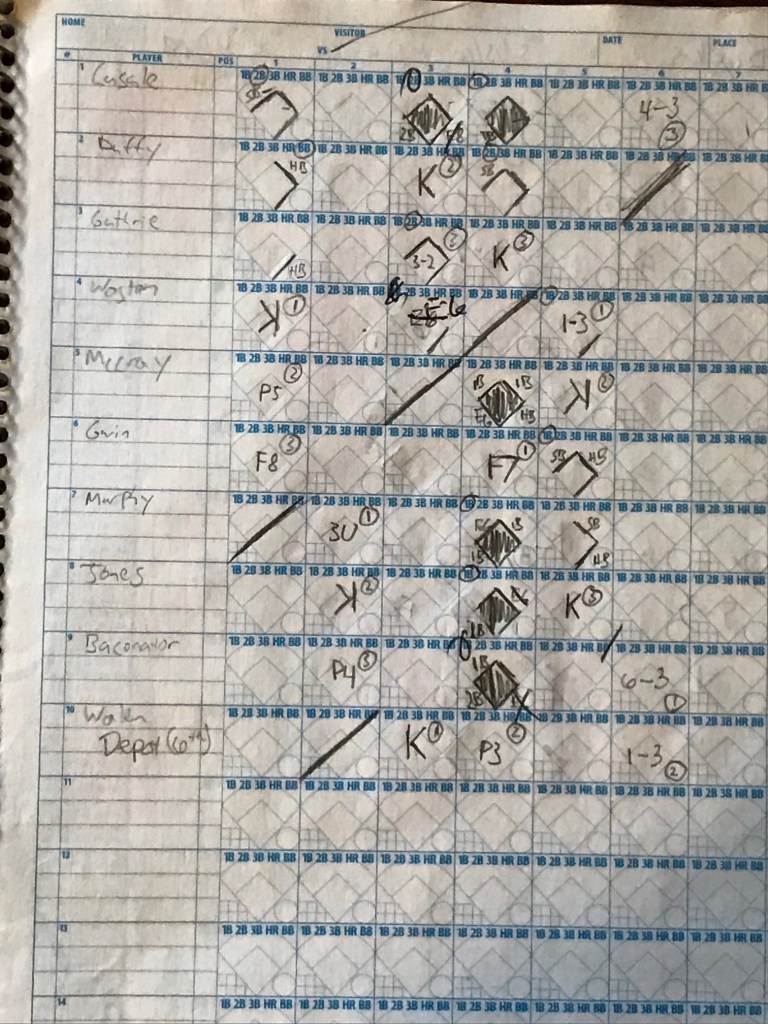 HOME
VISITOR
VS
DATE
PLACE
# PLAYER POS 1 2 3 4 5 6 7
1 1B 2B 3B HR BB 1B 2B 3B HR BB 1B 2B 3B HR BB 1B 2B 3B HR BB 1B 2B 3B HR BB 1B 2B 3B HR BB 1B 2B 3B HR B
SB 2B 4-3 3
2 Duffy 1B 2B 3B HR BB 1B 2B 3B HR BB 1B 2B 3B HR BB 1B 2B 3B HR BB 1B 2B 3B HR BB 1B 2B 3B HR BB 1B 2B 3B HR B
HB K 2 SB
3 Guthrie 1B 2B 3B HR BB 1B 2B 3B HR BB 1B 2B 3B HR BB 1B 2B 3B HR BB 1B 2B 3B HR BB 1B 2B 3B HR BB 1B 2B 3B HR B
HB 3-2 2 K 3
4 1B 2B 3B HR BB 1B 2B 3B HR BB 1B 2B 3B HR BB 1B 2B 3B HR BB 1B 2B 3B HR BB 1B 2B 3B HR BB 1B 2B 3B HR B
K 1 E6 1-3 1
5 Mccray 1B 2B 3B HR BB 1B 2B 3B HR BB 1B 2B 3B HR BB 1B 2B 3B HR BB 1B 2B 3B HR BB 1B 2B 3B HR BB 1B 2B 3B HR B
P5 2 1B 1B E6 HB K 2
6 Gwin 1B 2B 3B HR BB 1B 2B 3B HR BB 1B 2B 3B HR BB 1B 2B 3B HR BB 1B 2B 3B HR BB 1B 2B 3B HR BB 1B 2B 3B HR B
F8 3 F7 1 SB HB
7 Murphy 1B 2B 3B HR BB 1B 2B 3B HR BB 1B 2B 3B HR BB 1B 2B 3B HR BB 1B 2B 3B HR BB 1B 2B 3B HR BB 1B 2B 3B HR B
3U 1 E6 1B 1B SB HB
8 Jones 1B 2B 3B HR BB 1B 2B 3B HR BB 1B 2B 3B HR BB 1B 2B 3B HR BB 1B 2B 3B HR BB 1B 2B 3B HR BB 1B 2B 3B HR B
K 2 2B K 3
9 Baconator 1B 2B 3B HR BB 1B 2B 3B HR BB 1B 2B 3B HR BB 1B 2B 3B HR BB 1B 2B 3B HR BB 1B 2B 3B HR BB 1B 2B 3B HR B
P4 3 1B 2B 6-3 1
10 Walen 1B 2B 3B HR BB 1B 2B 3B HR BB 1B 2B 3B HR BB 1B 2B 3B HR BB 1B 2B 3B HR BB 1B 2B 3B HR BB 1B 2B 3B HR B
Depot (6th) K 1 P3 2 1-3 2
11 1B 2B 3B HR BB 1B 2B 3B HR BB 1B 2B 3B HR BB 1B 2B 3B HR BB 1B 2B 3B HR BB 1B 2B 3B HR BB 1B 2B 3B HR B
12 1B 2B 3B HR BB 1B 2B 3B HR BB 1B 2B 3B HR BB 1B 2B 3B HR BB 1B 2B 3B HR BB 1B 2B 3B HR BB 1B 2B 3B HR B
13 1B 2B 3B HR BB 1B 2B 3B HR BB 1B 2B 3B HR BB 1B 2B 3B HR BB 1B 2B 3B HR BB 1B 2B 3B HR BB 1B 2B 3B HR B
14 1B 2B 3B HR BB 1B 2B 3B HR BB 1B 2B 3B HR BB 1B 2B 3B HR BB 1B 2B 3B HR BB 1B 2B 3B HR BB 1B 2B 3B HR B